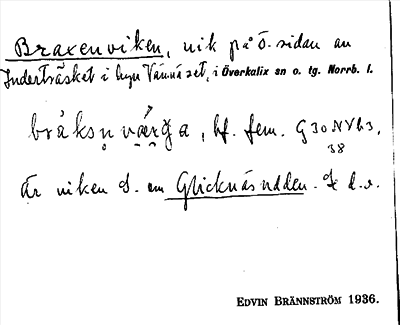 Braxenviken, vik på ö. sidan av
Inderträsket i byn Vännäset, i Överkalix sn o. tg. Norrb. l.
bråksn̥ vǽrğa, bf. fem. G 30 NV b3,
38
Är viken S. om Glicknäsudden. d. v.
EDVIN BRÄNNSTRÖM 1936.